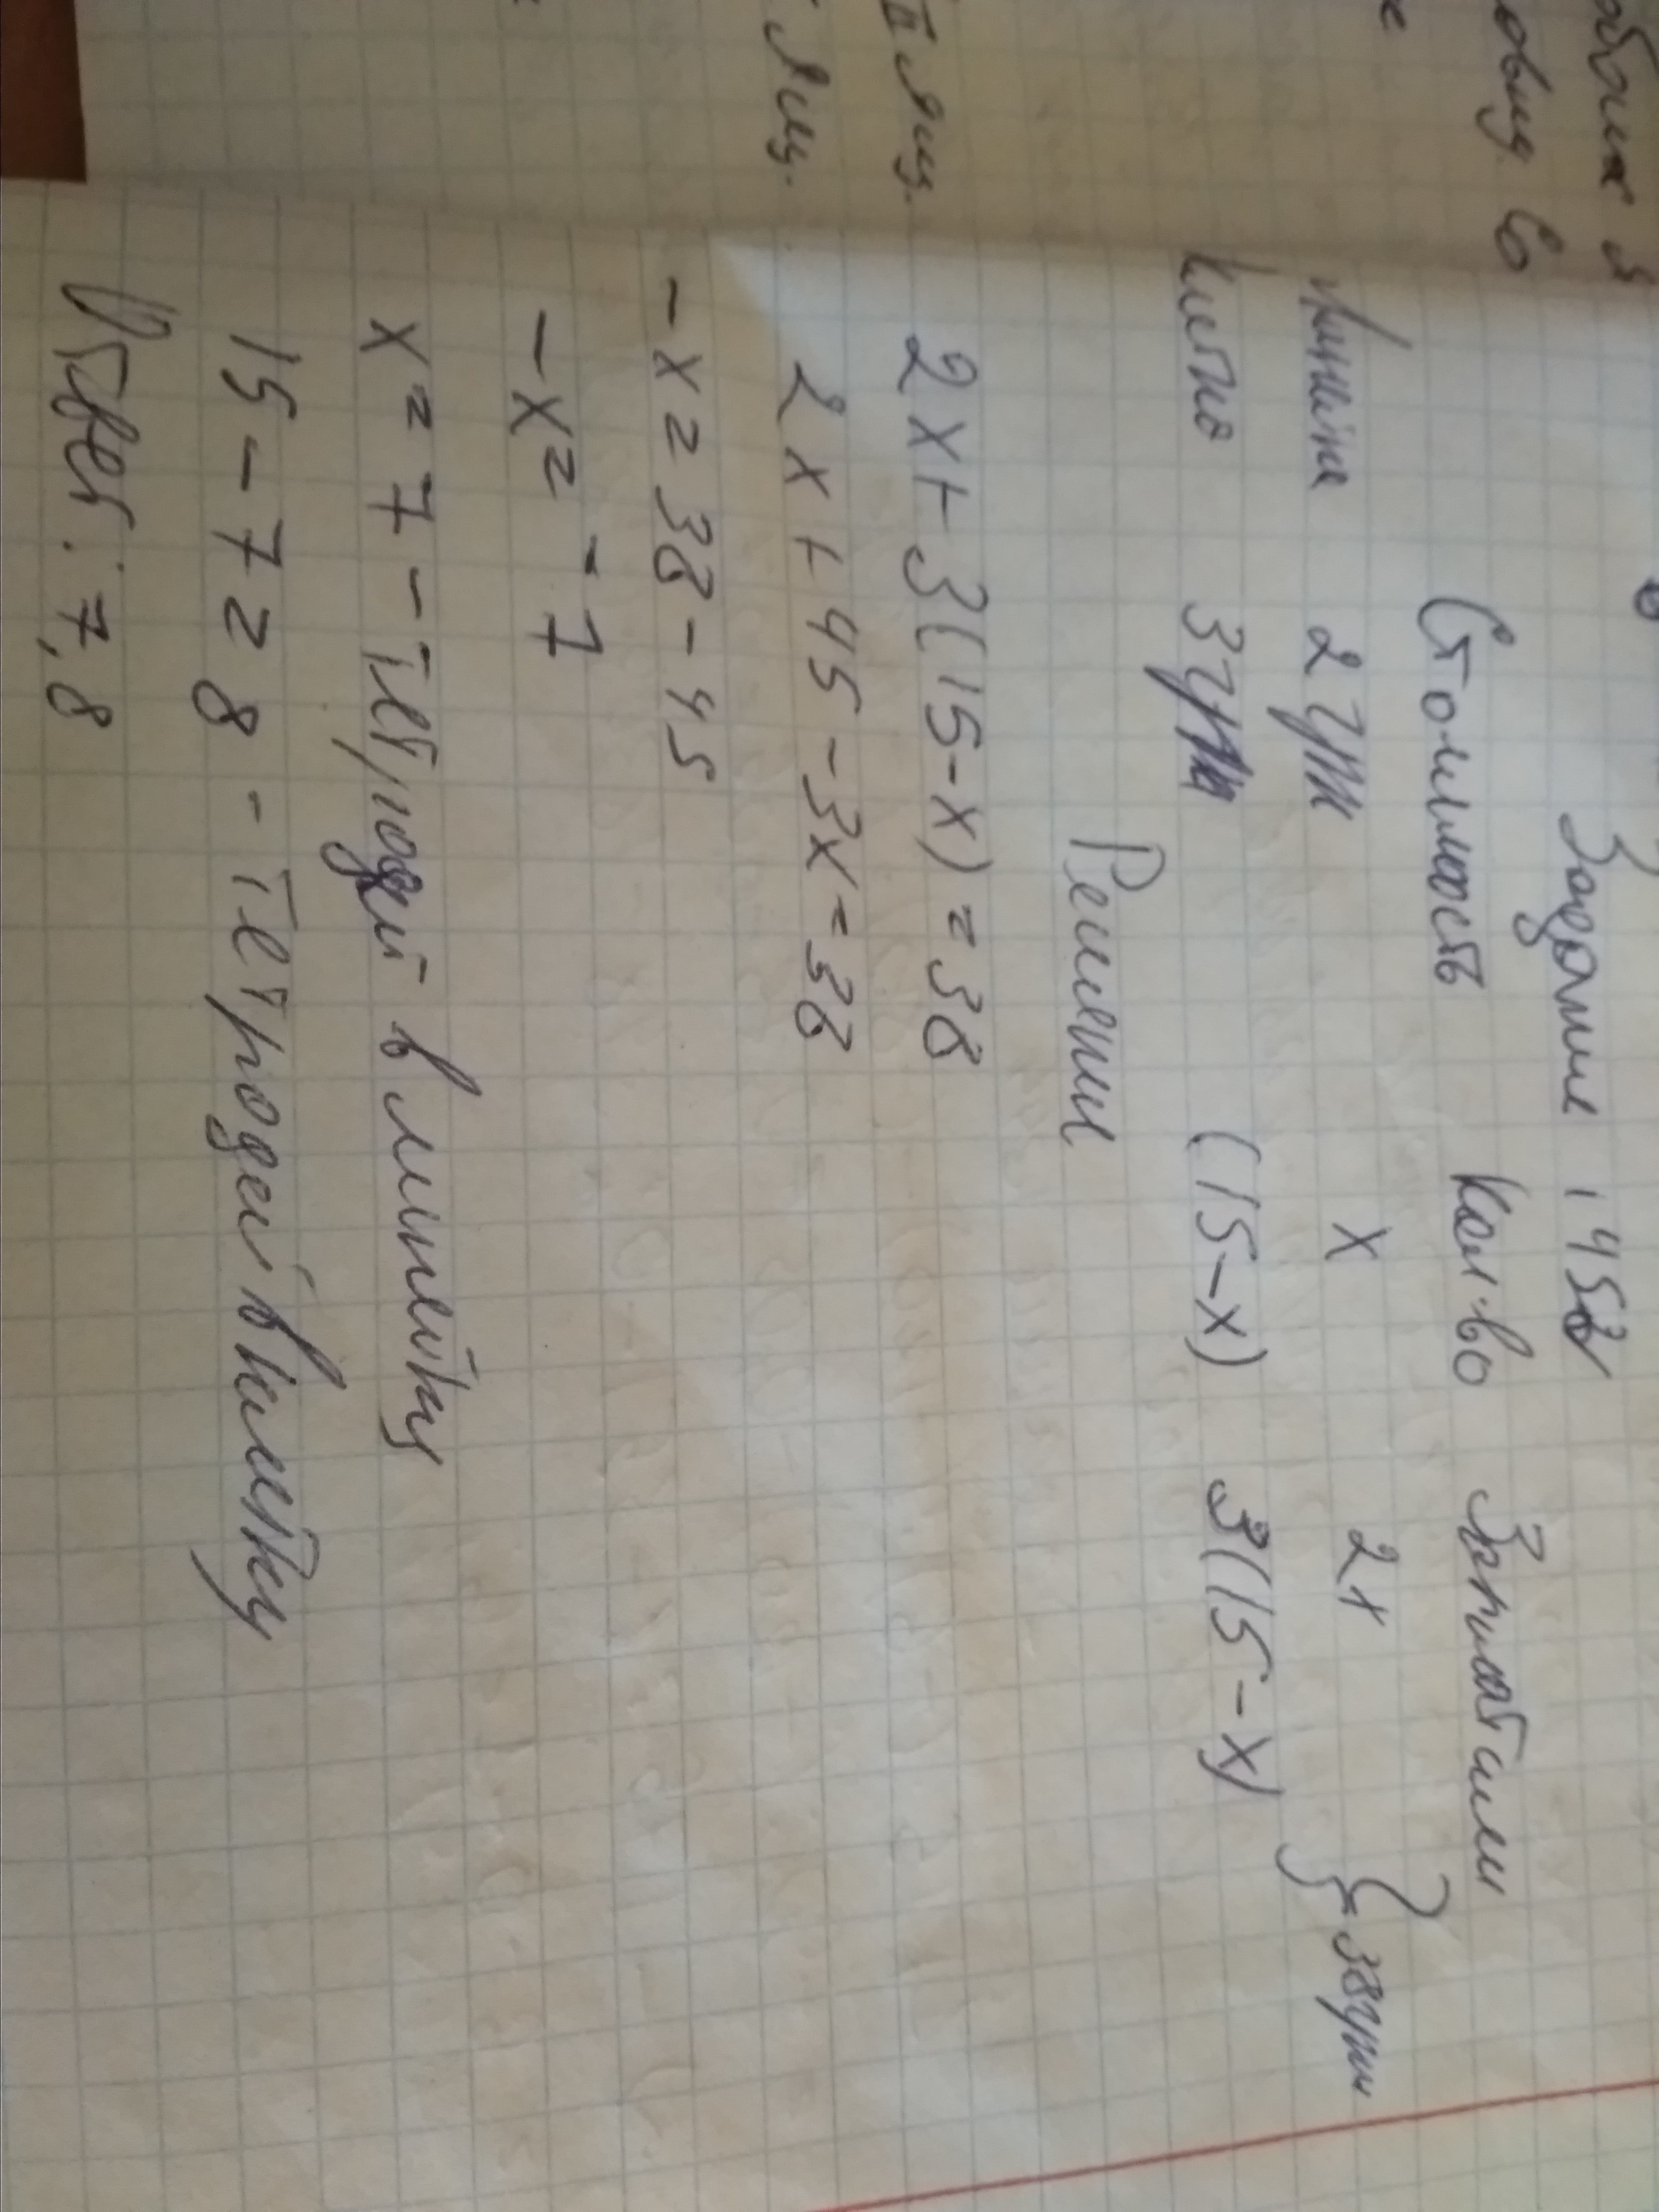 Задание 1458
Стоимость Кол-во Заплатили
Линейка 2 грн x 2x
Клетка 3 грн (15-x) 3(15-x) } = 38 грн
Решение
2x + 3(15-x) = 38
2x + 45 - 3x = 38
-x = 38 - 45
-x = -7
x = 7 - тетрадей в линейку
15 - 7 = 8 - тетрадей в клетку
Ответ: 7, 8